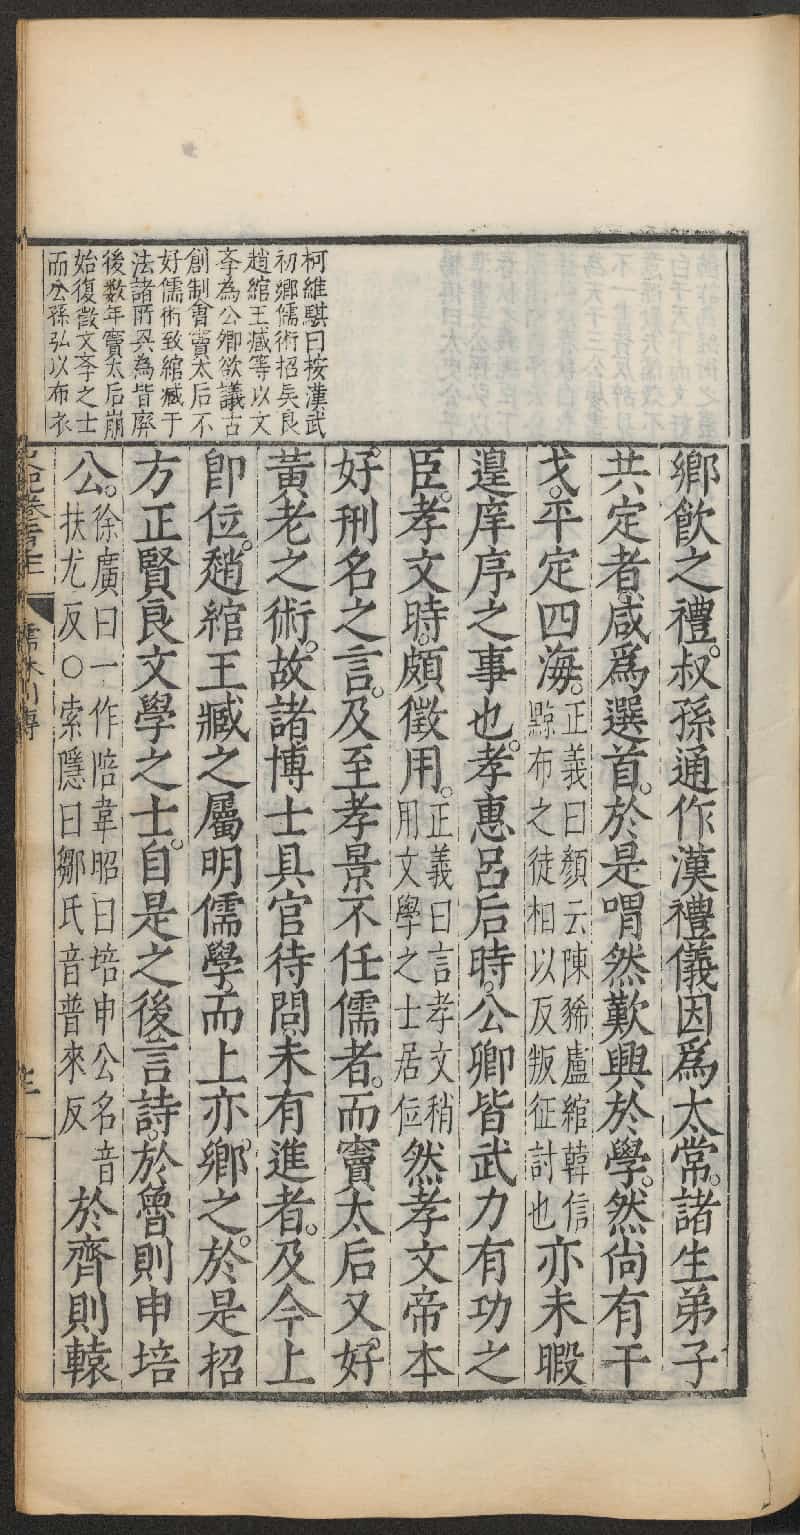 柯維騏曰按漢武
初鄉儒術招吳良
趙綰王臧等以文
孝為公卿欲議古
創制會竇太后不
好儒術致綰臧于
法諸所兴為皆廃
後数年竇太后崩
始復徵文孝之士
而公孫弘以布衣
鄉飲之禮叔孫通作漢禮儀因爲太常諸生弟子
共定者咸爲選首於是喟然歎興於學然尚有干
戈平定四海正義曰顏云陳豨盧綰韓信黥布之徒相以反叛征討也亦未暇
遑庠序之事也孝惠呂后時公卿皆武力有功之
臣孝文時頗徵用正義曰言孝文稍用文學之士居位然孝文帝本
好刑名之言及至孝景不任儒者而竇太后又好
黃老之術故諸博士具官待問未有進者及今上
即位趙綰王臧之屬明儒學而上亦鄉之於是招
方正賢良文學之士自是之後言詩於魯則申培
公徐廣曰一作陪韋昭曰培申公名音扶尤反○索隱曰鄒氏音普來反於齊則轅
儒林列傳